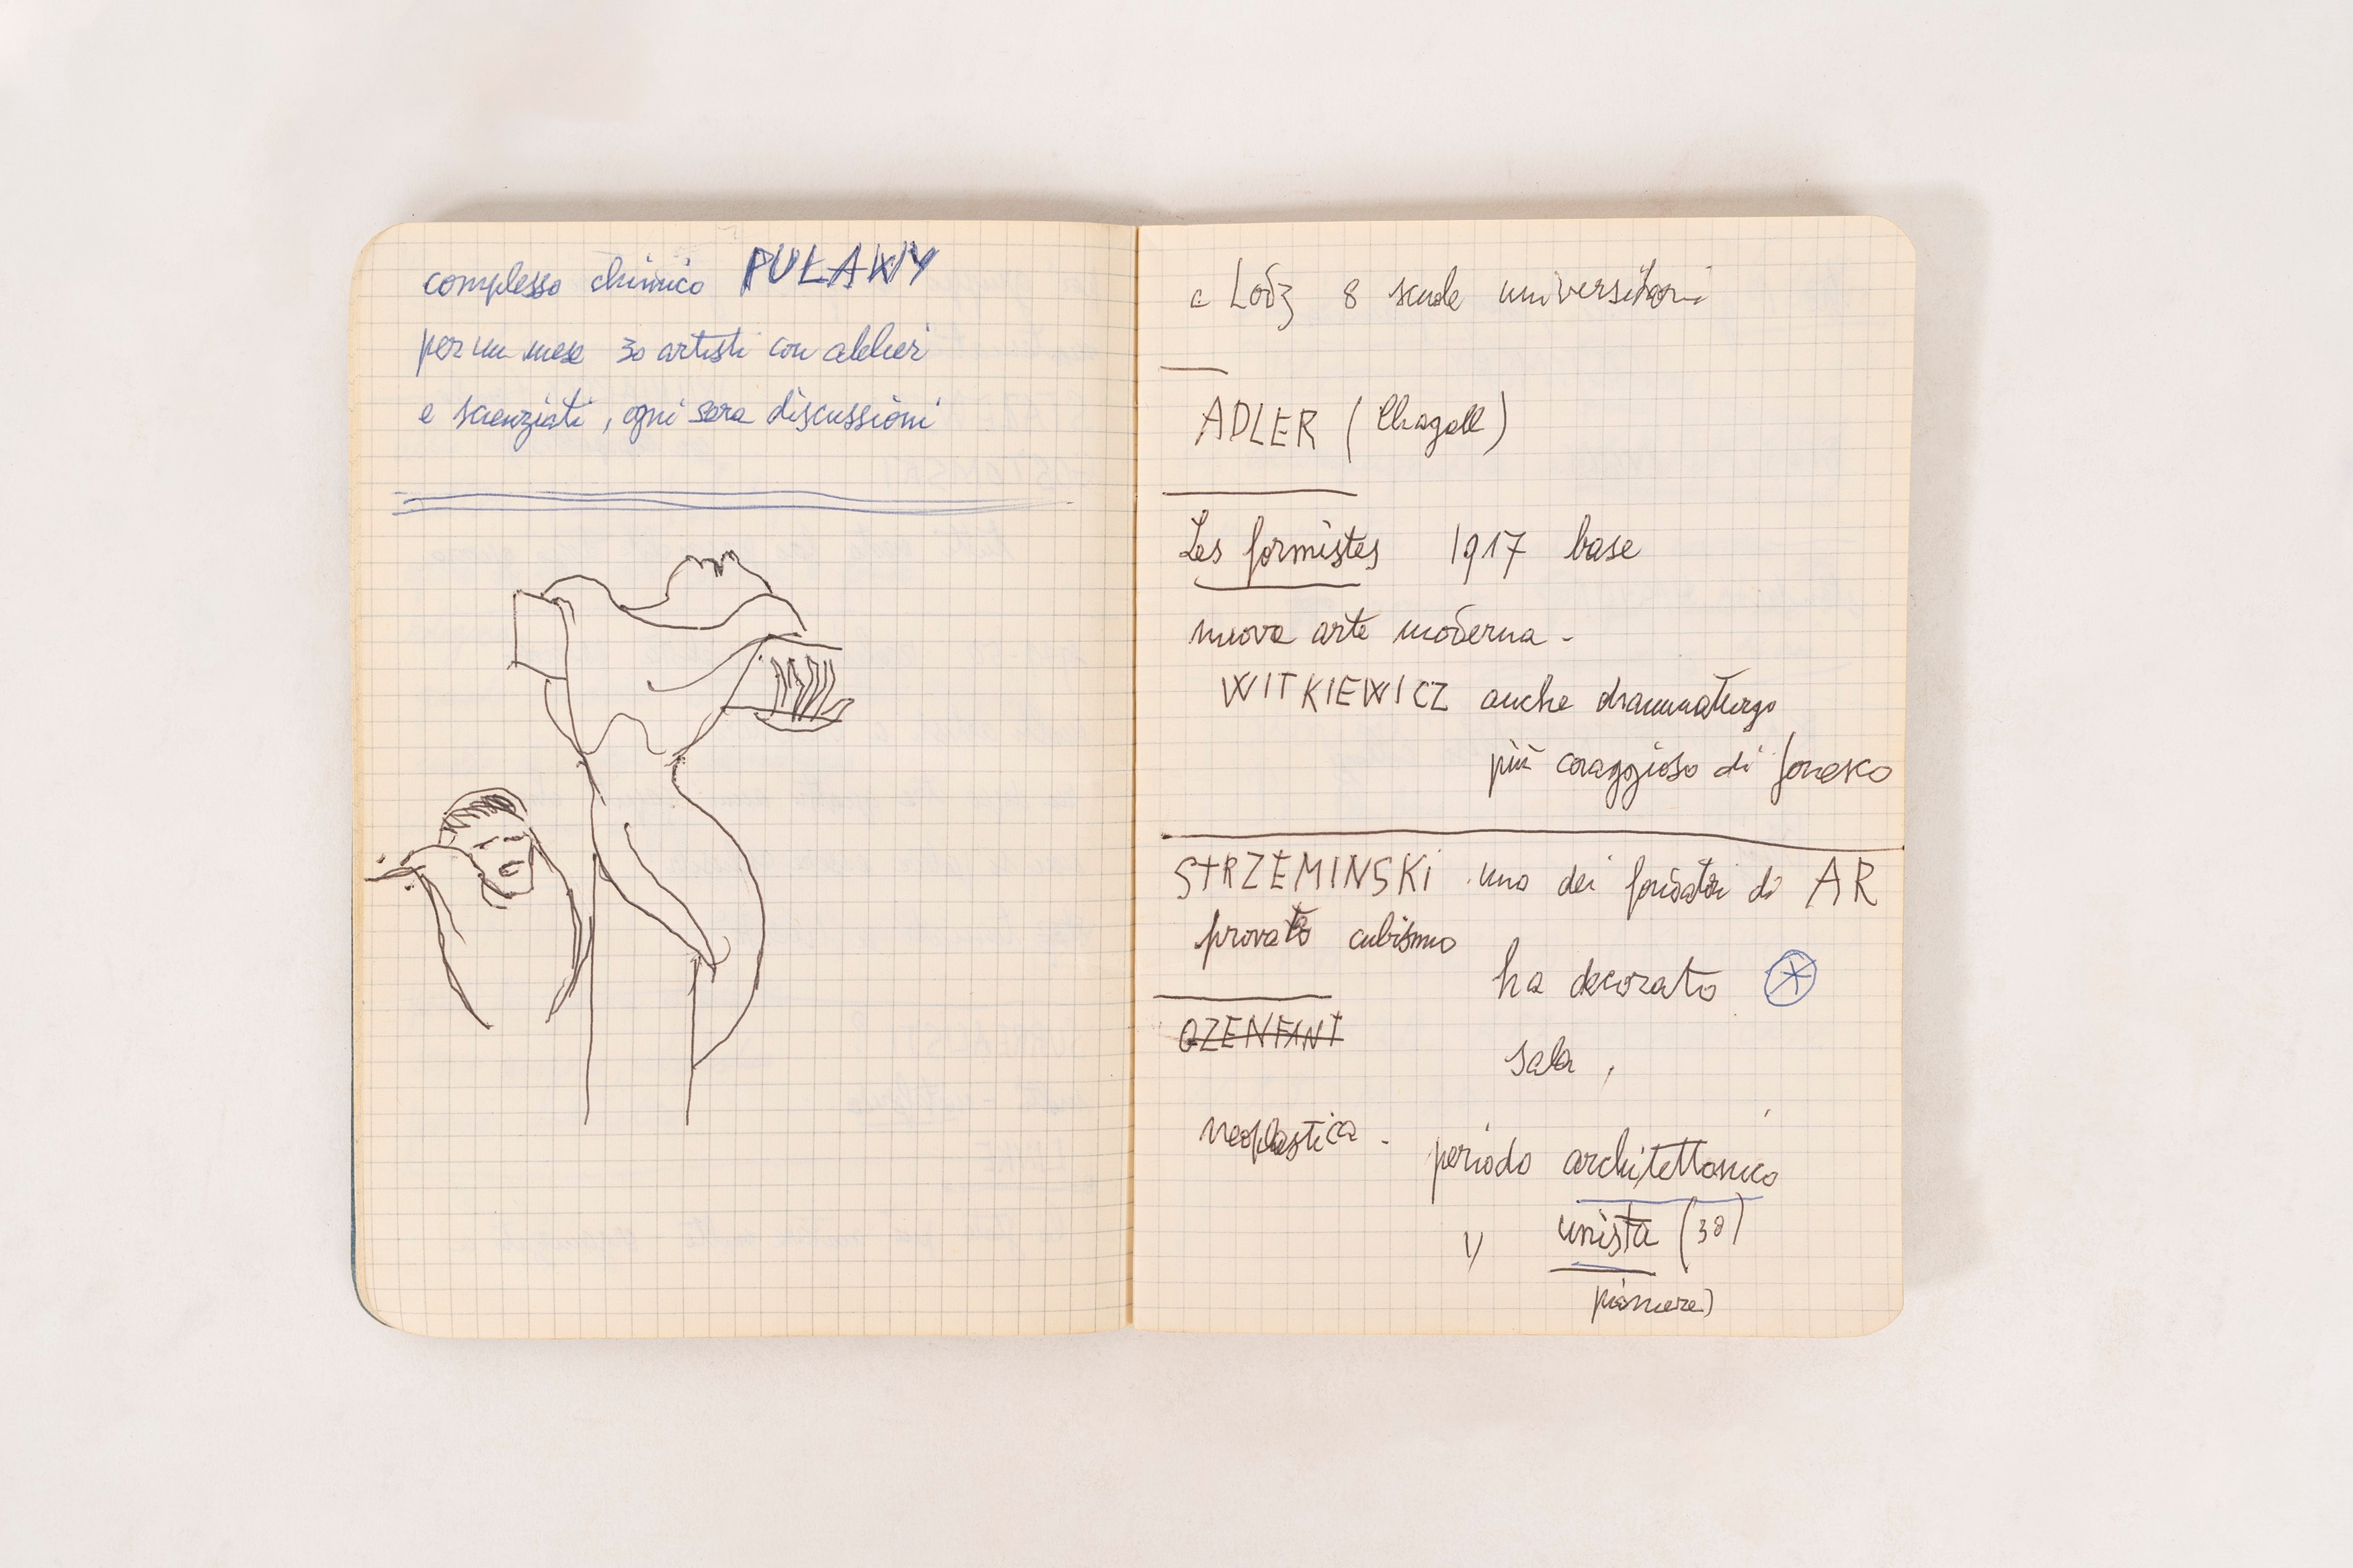 complesso chimico PUŁAWY
per un mese 30 artisti con atelier
e scienziati, ogni sera discussioni
a Lodz 8 scuole universitari
ADLER (Chagall)
Les formistes 1917 base
nuova arte moderna -
WITKIEWICZ anche drammaturgo
più coraggioso di Jonesco
STRZEMINSKI uno dei fondatori di AR
provato cubismo
ha decorato
OZENFANT
sala,
neoplastica - periodo architettonico
" unista (30)